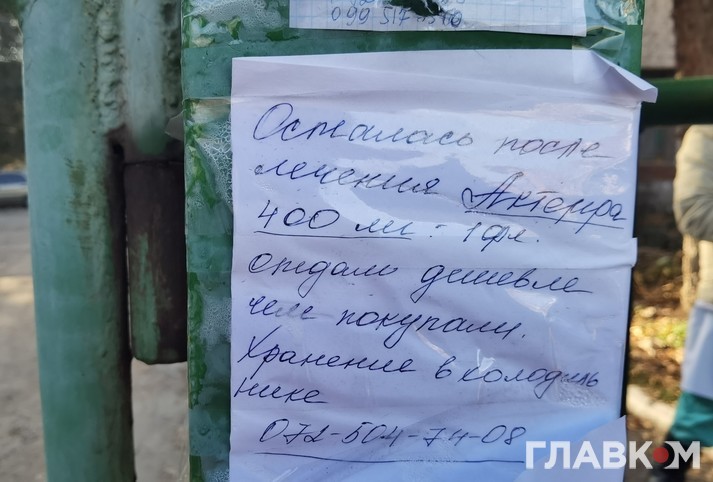 099 517
Осталась после
лечения Актемра
400 мг - 1 фл.
отдам дешевле
чем покупали.
Хранение в холодиль
нике
072-504-74-08
ГЛАВКОМ